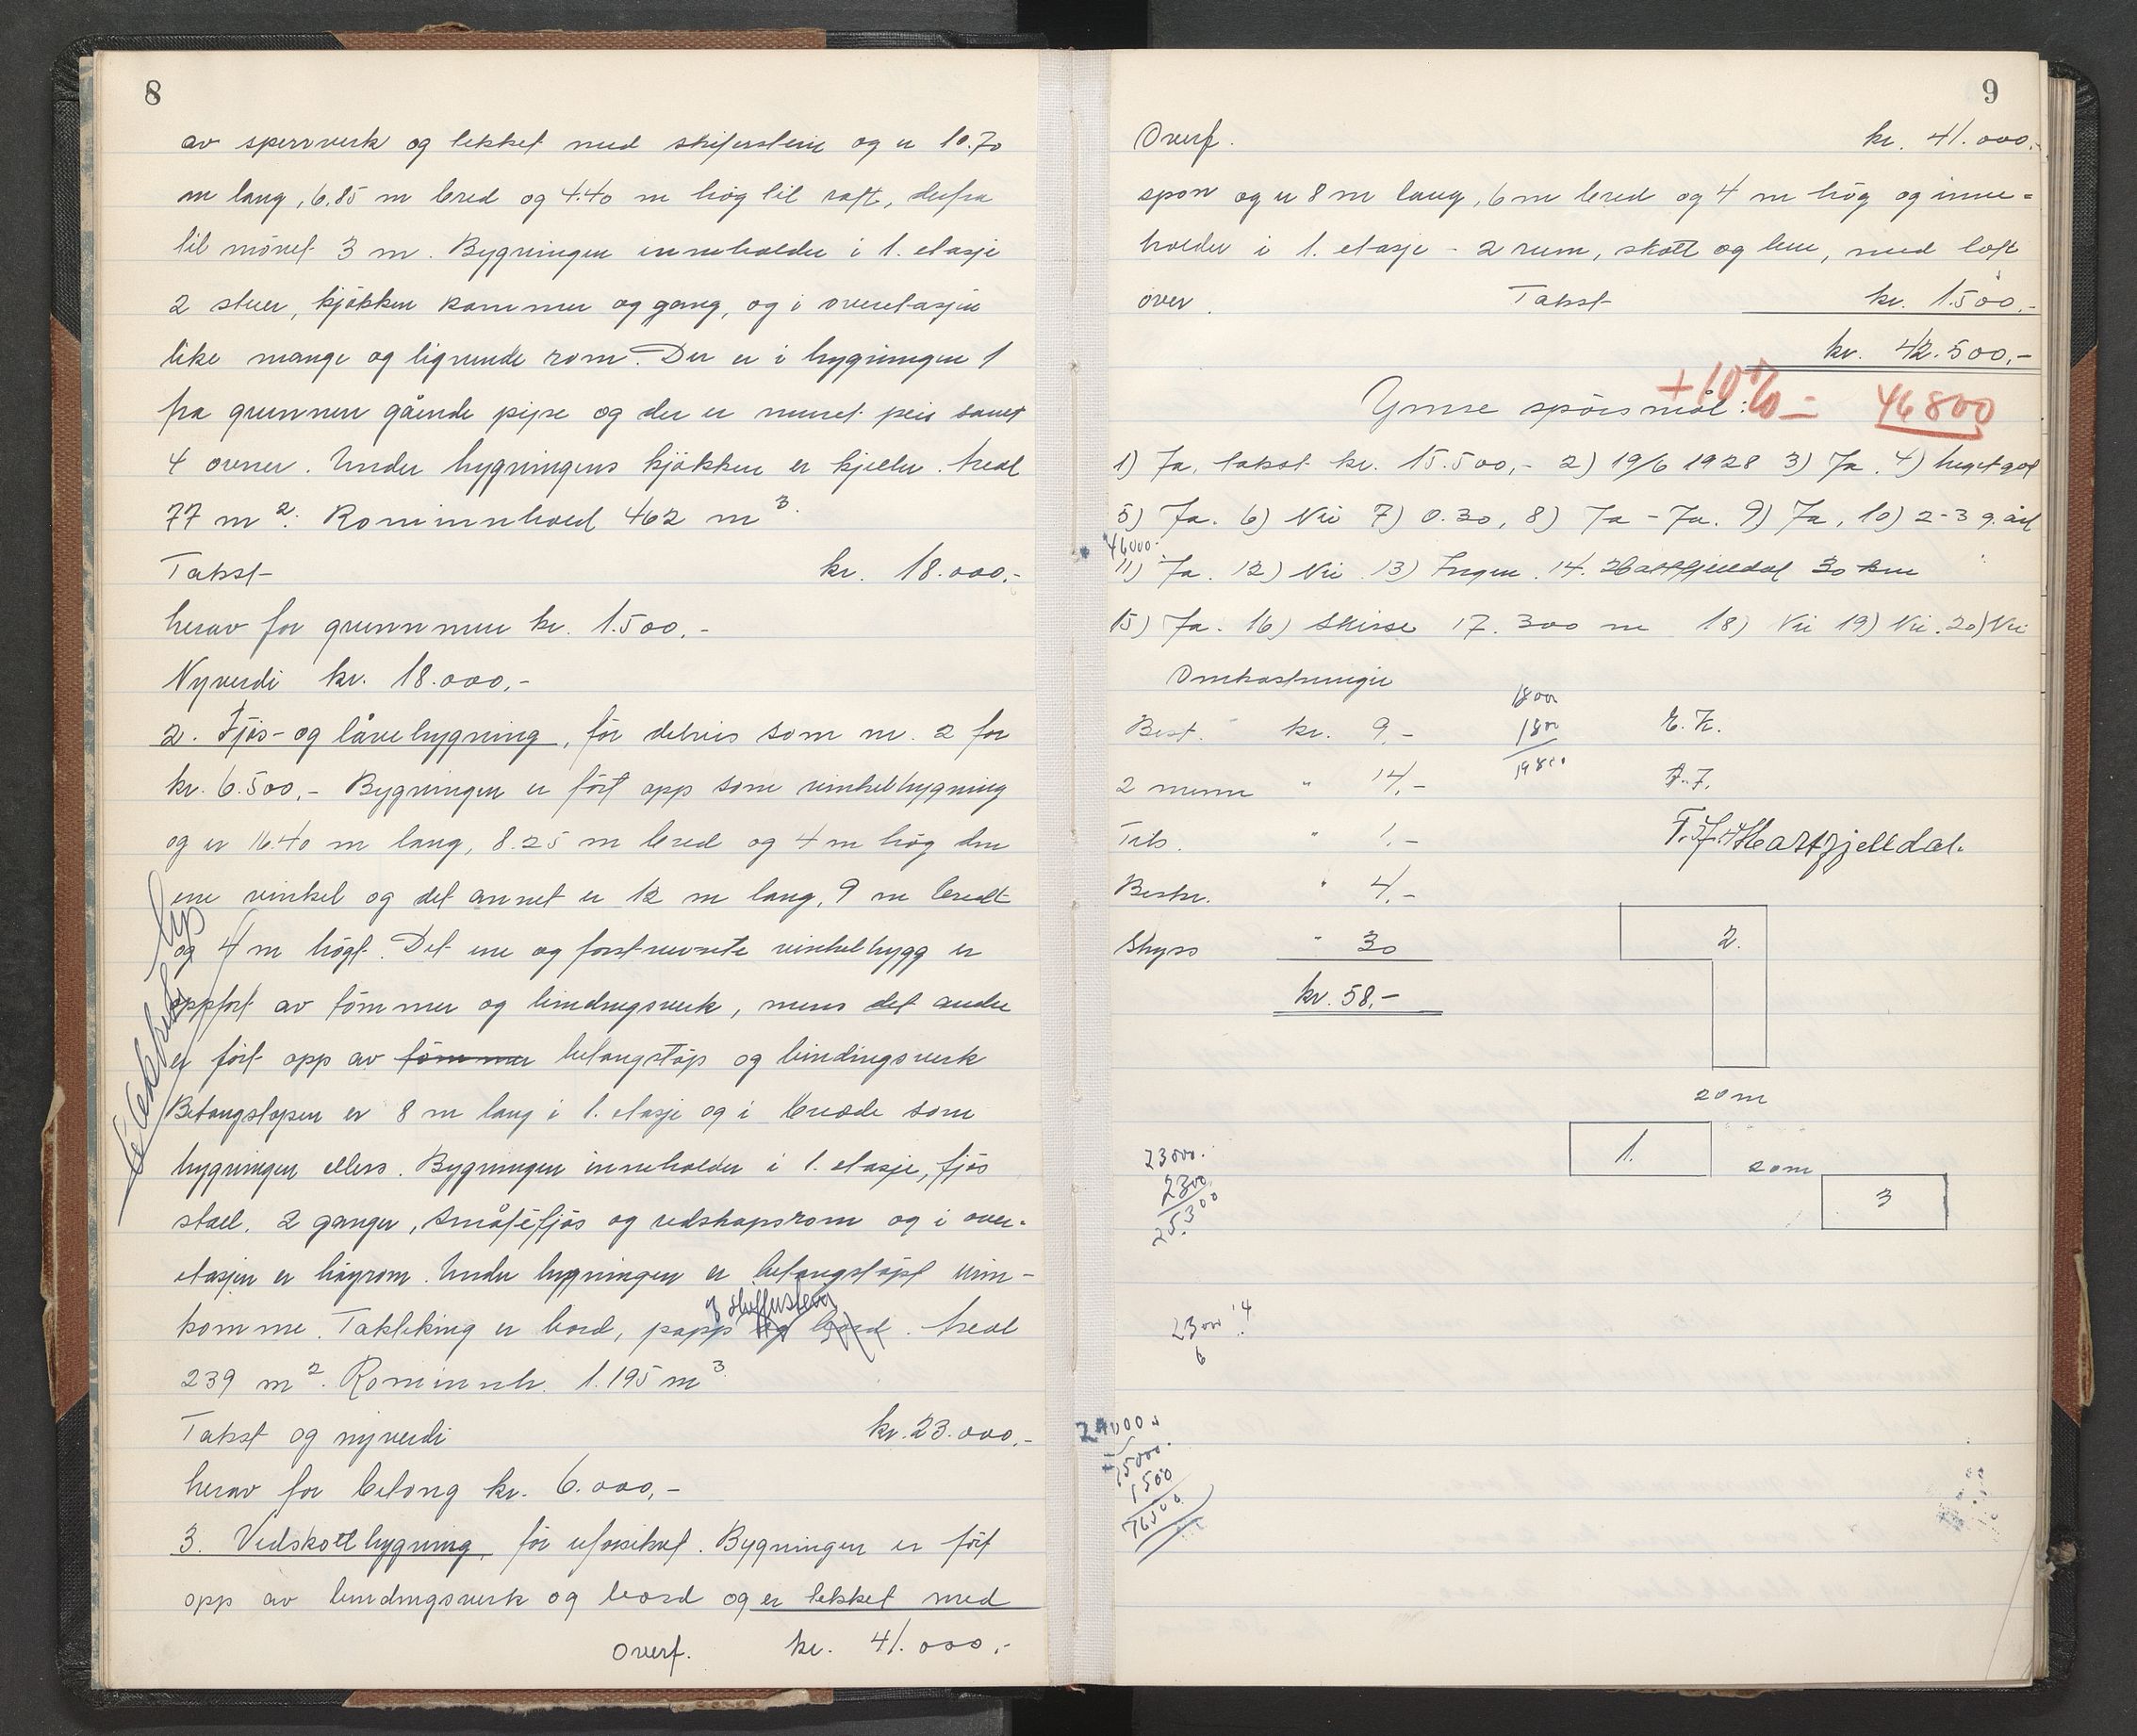 8
av sperrverk og tekket med skiferstein og er 10.70
m lang, 6.85 m bred og 4.40 m høg til raft, derfra
til mønet 3 m. Bygningen inneholder i 1. etasje
2 stuer, kjøkken kammer og gang, og i overetasjen
like mange og lignende rom. Der er i bygningen 1
fra grunnen gående pipe og der er muret peis samt
4 ovner. Under bygningens kjøkken er kjeller. Areal
77 m². Rominnhold 462 m³.
Takst kr. 18.000,-
herav for grunnmur kr. 1.500,-
Nyverdi kr. 18.000,-
2. Fjøs- og låvebygning, før delvis som nr. 2 for
kr. 6.500,- Bygningen er ført opp som vinkelbygning
og er 16.40 m lang, 8.25 m bred og 4 m høg den
ene vinkel og det annet er 12 m lang, 9 m bredt
og 4 m høgt. Det ene og forstnevnte vinkelbygg er
oppført av tømmer og bindingsverk, mens det andre
er ført opp av tømmer betongstøp og bindingsverk
Betongstøpen er 8 m lang i 1. etasje og i bredde som
bygningen ellers. Bygningen inneholder i 1. etasje, fjøs
stall, 2 ganger, småféfjøs og redskapsrom og i over-
etasjen er høyrom. Under bygningen er betongstøpt urin-
komme. Taktekking er bord, papp og bord. Areal
239 m². Rominnh. 1.195 m³.
Takst og nyverdi kr. 23.000,-
herav for betong kr. 6.000,-
3. Vedskottbygning, før uforsikret. Bygningen er ført
opp av bindingsverk og bord og er tekket med
Overf. kr. 41.000,-
9
Overf. kr. 41.000,-
spon og er 8 m lang, 6 m bred og 4 m høg og inne=
holder i 1. etasje - 2 rum, skott og bu, med loft
over. Takst kr. 1.500,-
kr. 42.500,-
+10% = 46800
Ymse spørsmål:
1) Ja, takst kr. 15.500,- 2) 19/6 1928 3) Ja. 4) meget god
5) Ja. 6) Nei 7) 0.30, 8) Ja - Ja. 9) Ja, 10) 2-3 g. årl
46000.
11) Ja. 12) Nei 13) Ingen. 14. Hattfjelldal 30 km
15) Ja. 16) Skisse 17. 300 m 18) Nei 19) Nei. 20) Nei
Omkostninger
Best. kr. 9,- E. K.
18000
1800
19800
2 menn " 14,- J. J.
Trb. " 1,- T. J. Hattfjelldal.
Beskr. " 4,-
Skyss " 30
kr. 58,-
2.
20 m
1.
20 m
3
23000.
2300
25.300
2300
6
1500
76500